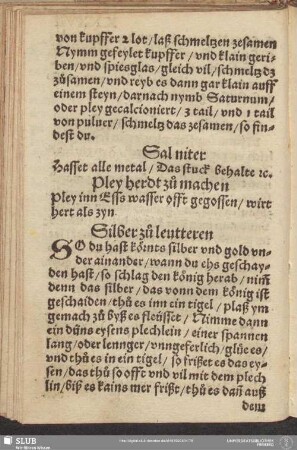 von kupffer 2 lot/ laß schmeltzen zesamen
Nymm gefeylet kupffer/ vnd klain geri-
ben/ vnd spiesglas/ gleich vil/ schmeltz dz
zůsamen/ vnd reyb es dann gar klain auff
einem steyn/ darnach nymb Saturnum/
oder pley gecalcioniert/ 3 tail/ vnd 1 tail
von puluer/ schmeltz das zesamen/ so fin-
dest du.
Sal niter
Hasset alle metal/ Das stuck behalte ꝛc.
Pley herdt zů machen
Pley inn Esss wasser offt gegossen/ wirt
hert als zyn
Silber zů leutteren
SO du hast körnts silber vnd gold vn-
der ainander/ wann du ehs geschay-
den hast/ so schlag den könig herab/ nim̃
denn das silber/ das vonn dem könig ist
geschaiden/ thů es inn ein tigel/ plaß ym
gemach zů byß es fleüsset/ Nimme dann
ein düns eysens plechlein/ einer spannen
lang/ oder lennger/ vnngeferlich/ glüe es/
vnd thů es in ein tigel/ so frißet es das ey-
sen/ das thů so offt vnd vil mit dem plech
lin/ biß es kains mer frißt/ thů es dañ auß
dem
SLUB
Wir führen Wissen.